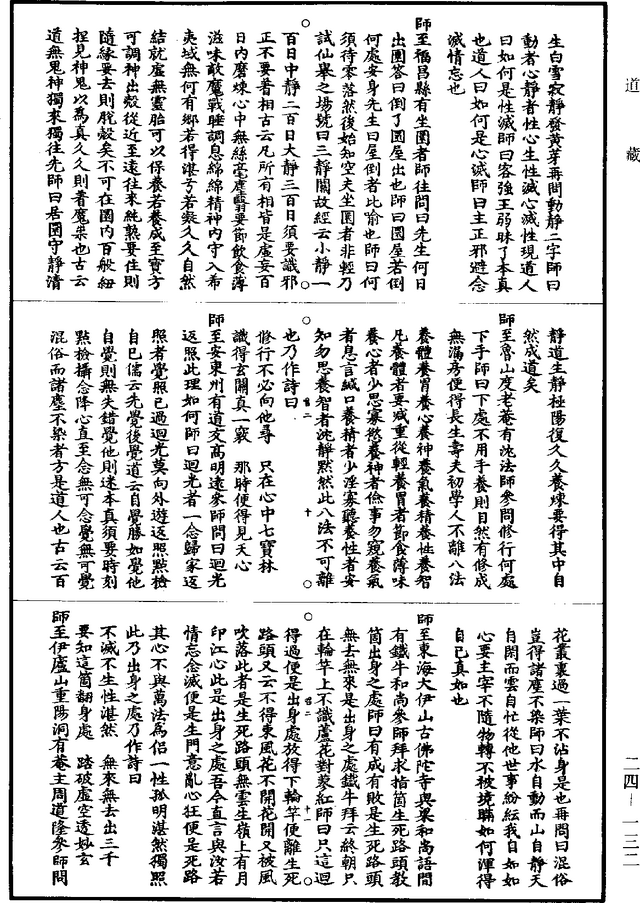 道藏
生白雪寂靜發黃芽再問動靜二字師曰
動者心靜者性心生性滅心滅性現道人
曰如何是性滅師曰客強主弱昧了本真
也道人曰如何是心滅師曰主正邪避念
滅情忘也
師至福昌縣有坐圜者師往問曰先生何日
出圜答曰倒了圜屋出也師曰圜屋若倒
何處安身先生曰屋倒者比喻也師曰何
須待零落然後始知空夫坐圜者非輕乃
試仙舉之場號曰三靜關故經云小靜一
百日中靜二百日大靜三百日須要識邪
正不要著相古云凡所有相皆是虛妄百
日內磨煉心中無絲毫塵翳要節飲食薄
滋味敵魔戰睡調息綿綿精神內守入希
夷域無何有鄉若得濛兮若礙久久自然
結就虛無靈胎可以保養若養成至寶方
可調神出殼從近至遠往來純熟要住則
隨緣要去則脫殼矣不可在圜內百般紐
捏見神見鬼以為真久久則著魔祟也古云
道無鬼神獨來獨往先師曰居圜守靜清
靜道生靜極陽復久久養煉要得其中自
然成道矣
師至魯山度老菴有沈法師參問修行何處
下手師曰下處不用手養則自然有修成
無漏房便得長生壽夫初學人不離八法
養體養胃養心養神養氣養精養性養智
凡養體者要減重從輕養胃者節食薄味
養心者少思寡慾養神者儉事勿窺養氣
者息言緘口養精者少淫寡聽養性者安
知勿思養智者沈靜默然此八法不可離
也乃作詩曰
修行不必向他尋　只在心中七寶林
識得玄關真一竅　那時便得見天心
師至安東州有道友高明遠參師問曰迴光
返照此理如何師曰迴光者一念歸家返
照者覺照已過迴光莫向外遊返照點檢
自己儒云先覺後覺道云自覺勝如覺他
自覺則無失錯覺他則迷本真須要時刻
點檢攝念降心直至念無可念覺無可覺
混俗而諸塵不染者方是道人也古云百
花叢裏過一葉不沾身是也再問曰混俗
豈得諸塵不染師曰水自動而山自靜天
自閑而雲自忙從他世事紛紜我自如如
心要主宰不隨物轉不被境瞞如何渾得
自己真如也
師至東海大伊山古佛陀寺與眾和尚語間
有鐵牛和尚參師拜求指箇生死路頭教
箇出身之處師曰有成有敗是生死路頭
無去無來是出身之處鐵牛拜云終朝只
在輪竿上不識蘆花對蓼紅師曰只這迴
得過便是出身處放得下輪竿便離生死
路頭又云不得東風花不開花開又被風
吹落此者是生死路頭無雲生嶺上有月
印江心此是出身之處吾今直言與汝若
情忘念滅便是生門意亂心狂便是死路
其心不與萬法為侶一性孤明湛然獨照
此乃出身之處乃作詩曰
不滅不生性湛然　無來無去出三千
要知這箇翻身處　踏破虛空透妙玄
師至伊廬山重陽洞有菴主周道隆參師問
二四－一三二